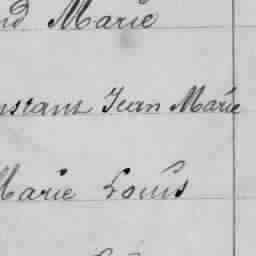 nd Marie
nstans Jean Marie
Marie Louis